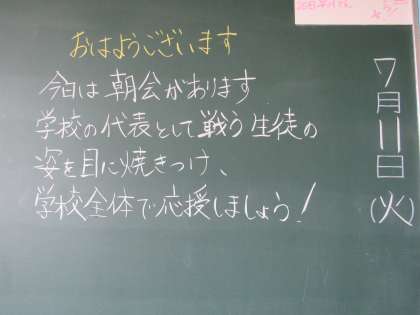 おはようございます
今日は朝会があります
学校の代表として戦う生徒の
姿を目に焼きつけ、
学校全体で応援しましょう!
7月11日(火)